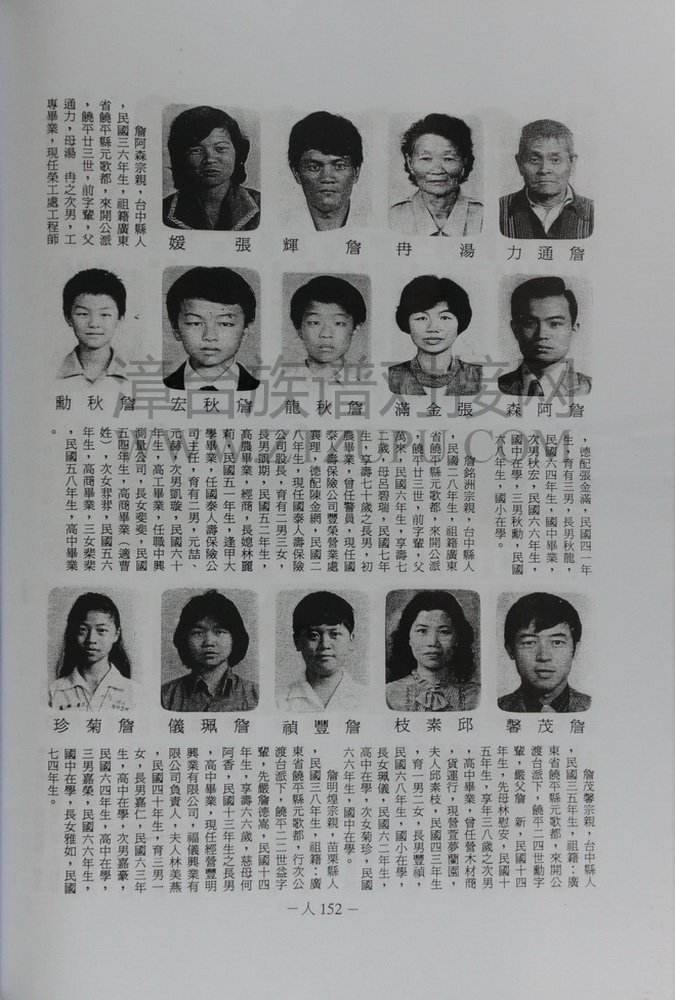 詹通力
湯冉
詹輝
張媛
詹阿森宗親，台中縣人
，民國三六年生，祖籍廣東
省饒平縣元歌都，來開公派
，饒平廿三世，前字輩，父
通力，母湯 冉之次男，工
專畢業，現任榮工處工程師
詹阿森
張金滿
詹秋龍
詹秋宏
詹秋勳
漳台族谱对接网
，德配張金滿，民國四一年
生，育有三男，長男秋龍，
民國六四年生，國中畢業，
次男秋宏，民國六六年生，
國中在學，三男秋勳，民國
六八年生，國小在學。
詹銘洲宗親，台中縣人
，民國二八年生，祖籍廣東
省饒平縣元歌都，來開公派
，饒平廿三世，前字輩，父
萬來，民國六年生，享壽七
二歲，母呂碧瑞，民國七年
生，享壽七十歲之長男，初
農畢業，曾任警員，現任國
泰人壽保險公司豐榮營業處
襄理，德配陳金網，民國二
八年生，現任國泰人壽保險
公司股長，育有二男三女，
長男凱期，民國五二年生，
高農畢業，經商，長媳林麗
莉，民國五一年生，逢甲大
學畢業，任國泰人壽保險公
司主任，育有二男，元喆、
元赫，次男凱璇，民國六十
年生，高工畢業，任職中興
測量公司，長女斐斐，民國
五四年生，高商畢業（適曹
姓），次女菽菽，民國五六
年生，高商畢業，三女棐棐
，民國五八年生，高中畢業
。
詹茂馨
邱素枝
詹豐禎
詹珮儀
詹菊珍
詹茂馨宗親，台中縣人
，民國三五年生，祖籍：廣
東省饒平縣元歌都，來開公
渡台派下，饒平二四世勳字
輩，嚴父詹 新，民國十四
年生，先母林慰安，民國十
五年生，享年三八歲之次男
，高中畢業，曾任營木材商
，貨運行，現營萱夢蘭園，
夫人邱素枝，民國四三年生
，育一男二女，長男豐禎，
民國六八年生，國小在學，
長女珮儀，民國六二年生，
高中在學，次女菊珍，民國
六六年生，國中在學。
詹明煌宗親，苗栗縣人
，民國三八年生，祖籍：廣
東省饒平縣元歌都，行次公
渡台派下，饒平二二世益字
輩，先嚴詹德嵩，民國十四
年生，享壽六六歲，慈母何
阿香，民國十三年生之長男
，高中畢業，現任經營豐明
興業有限公司，福儀興業有
限公司負責人，夫人林美燕
，民國四十年生，育三男一
女，長男嘉仁，民國六三年
生，高中在學，次男嘉豪，
民國六四年生，高中在學，
三男嘉榮，民國六六年生，
國中在學，長女雅如，民國
七四年生。
－人 152－